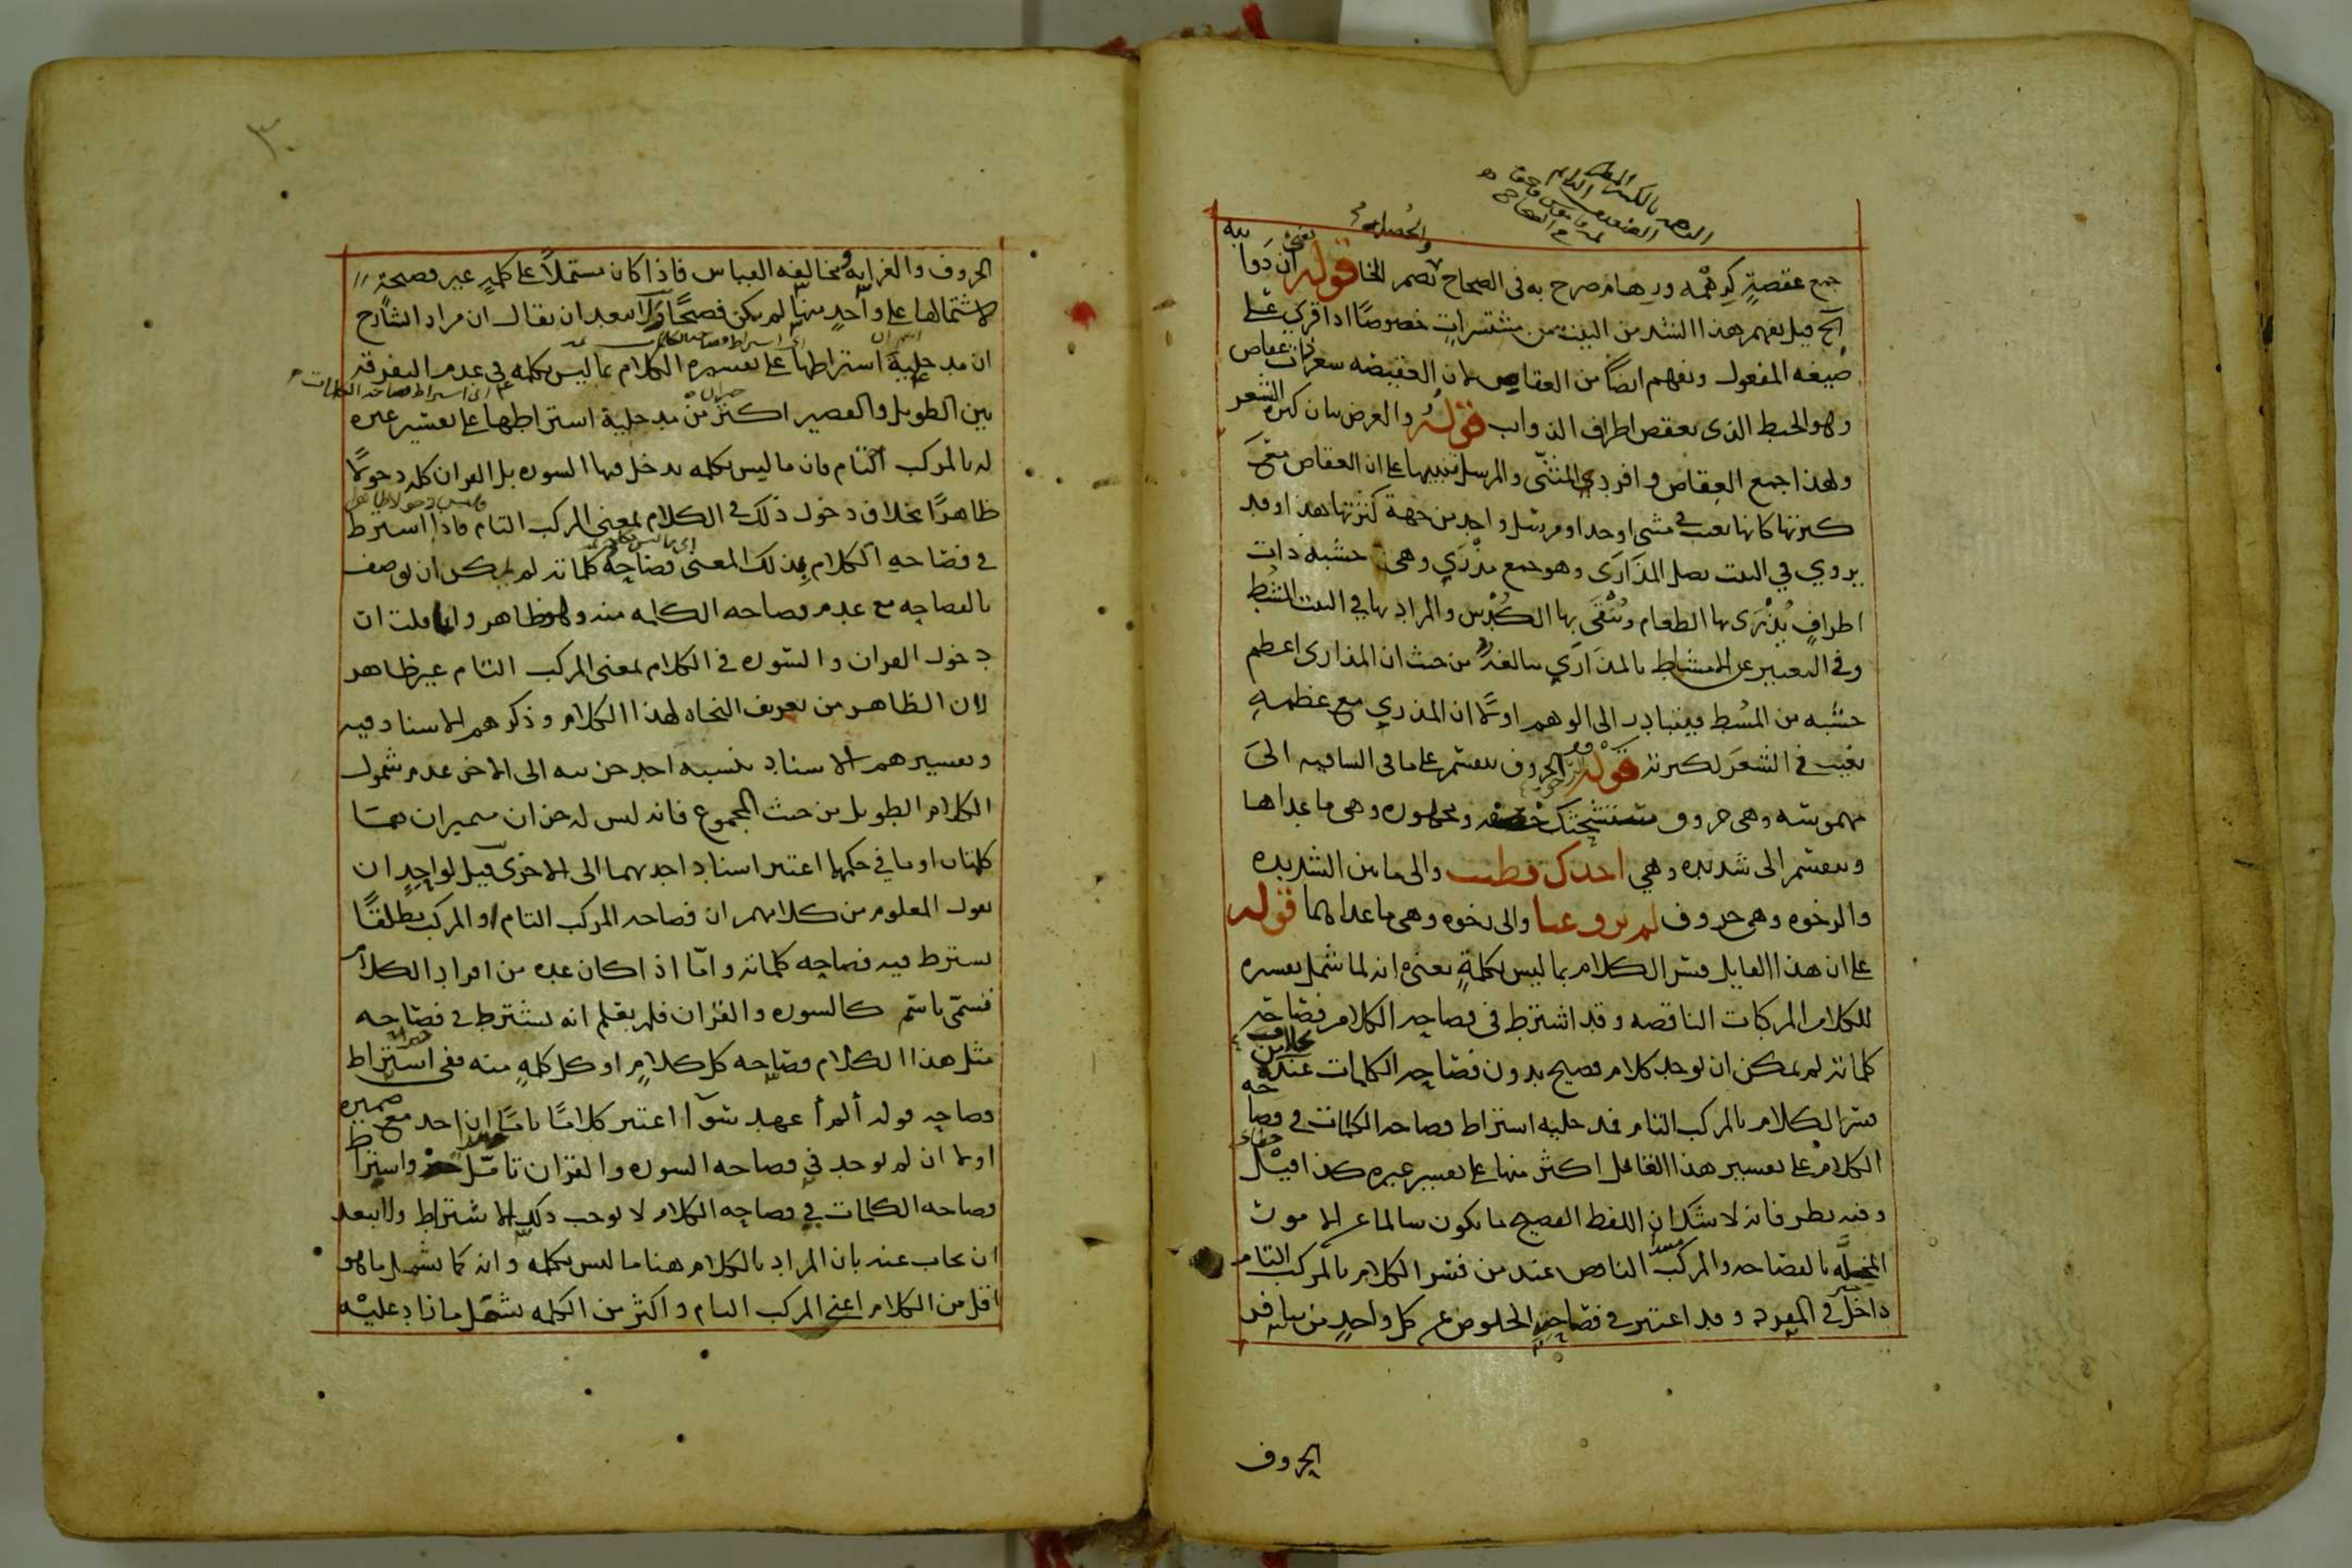 جمع عقصة كرهمه ورهام صرح به في الصحاح بضم الخا قوله ان ذوا
ئبه
الخ قيل يفهم هذا الشد من البيت من مستشزرات خصوصًا اذا قري على
صيغه المفعول ويفهم ايضًا من العقاص لان العقيصه شعر ذات عقاص
وهو الخيط الذي يعقص اطراف الذوايب قوله والغرض بيان كثرة الشعر
ولهذا جمع العقاص وافرد المثنّى والمرسل تنبيها على ان العقاص مع
كثرتها كانها تغيب في مثنى واحد او مرسل واحد من جهة كثرتهما هذا وقد
يروي في البيت يضل المذاري وهو جمع مذري وهي خشبة ذات
اطراف يُذْرَى بها الطعام وتُنقَى بها الكُدْس والمراد بها في البيت المشط
وفي التعبير عن المشاط بالمذاري مبالغة من حيث ان المذاري اعظم
خشبه من المشط فيتبادر الى الوهم اولًا ان المذري مع عظمه
يغيب في الشعر لكثرته قوله الحروف ينقسم على ما في الشافيه الى
مهموسه وهي حروف ستشحثك خصفه ومجهوره وهي ما عداها
وينقسم الى شديده وهي اجدك قطبت والى ما بين الشديده
والرخوه وهي حروف لم يروعنا والى رخوه وهي ما عداهما قوله
على ان هذا القايل فسر الكلام بما ليس بكلمةٍ يعني انه لما شمل تفسيره
للكلام المركبات الناقصه وقد اشترط في فصاحه الكلام فصاحة
كلماته لم يمكن ان يوجد كلام فصيح بدون فصاحه الكلمات عنده بخلاف من
فسر الكلام بالمركب التام فمدخليه اشتراط فصاحه الكلمات في فصاحه
الكلام على تفسير هذا القايل اكثر منها على تفسير غيره كذا قيل
وفيه نظر فانه لا شك ان اللفظ الفصيح ما يكون سالما عن الامور
المخلّه بالفصاحه والمركب الناقص عند من فسر الكلام بالمركب التام
داخل في المفرد وقد اعتبر في فصاحته الخلوص عن كل واحد من تنافر
الحروف
الحروف والغرابه ومخالفه القياس فاذا كان مشتملًا على كلمةٍ غير فصيحة
لاشتمالها على واحدٍ منها لم يكن فصيحًا ولا يبعد ان يقال ان مراد الشارح
ان مدخلية اشتراطها على تفسيره الكلام بما ليس بكلمه في عدم التفرقه
بين الطويل والقصير اكثر من مدخلية اشتراطها على تفسير غيره
له بالمركب التام فان ما ليس بكلمه يدخل فيها السوره بل القران كله دخولًا
ظاهرًا بخلاف دخول ذلك في الكلام بمعنى المركب التام فاذا اشترط
في فصاحه الكلام بذلك المعنى فصاحة كلماته لم يمكن ان يوصف
بالفصاحه مع عدم فصاحه الكلمه منه وهو ظاهر وانما قلت ان
دخول القران والسوره في الكلام بمعنى المركب التام غير ظاهر
لان الظاهر من تعريف النحاه لهذا الكلام وذكرهم الاسناد فيه
وتفسيرهم الاسناد بنسبه احد جزئيه الى الاخر عدم شمول
الكلام الطويل من حيث المجموع فانه ليس له جزان متميزان هما
كلمتان او ما في حكمهما اعتبر اسناد احدهما الى الاخرى قيل لواحدٍ ان
يقول المعلوم من كلامهم ان فصاحه المركب التام او المركب مطلقًا
يشترط فيه فصاحه كلماته وامّا اذا كان عده من افراد الكلام
فسمّى باسم كالسوره والقران فلم يعلم انه يشترط في فصاحه
مثل هذا الكلام فصاحه كل كلامٍ او كل كلمهٍ منه ففي اشتراط
فصاحه قوله ألم أعهد سوآ اعتبر كلامًا تامًا ان احد مع ضميره
اولا ان لم يوجد في فصاحه السوره والقران تامّل واشتراط
فصاحه الكلمات في فصاحه الكلام لا يوجب ذلك الاشتراط ولا يبعد
ان يجاب عنه بان المراد بالكلام هنا ما ليس بكلمه وانه كما يشمل ما هو
اقل من الكلام اعني المركب التام واكثر من الكلمه يشمل ما زاد عليه